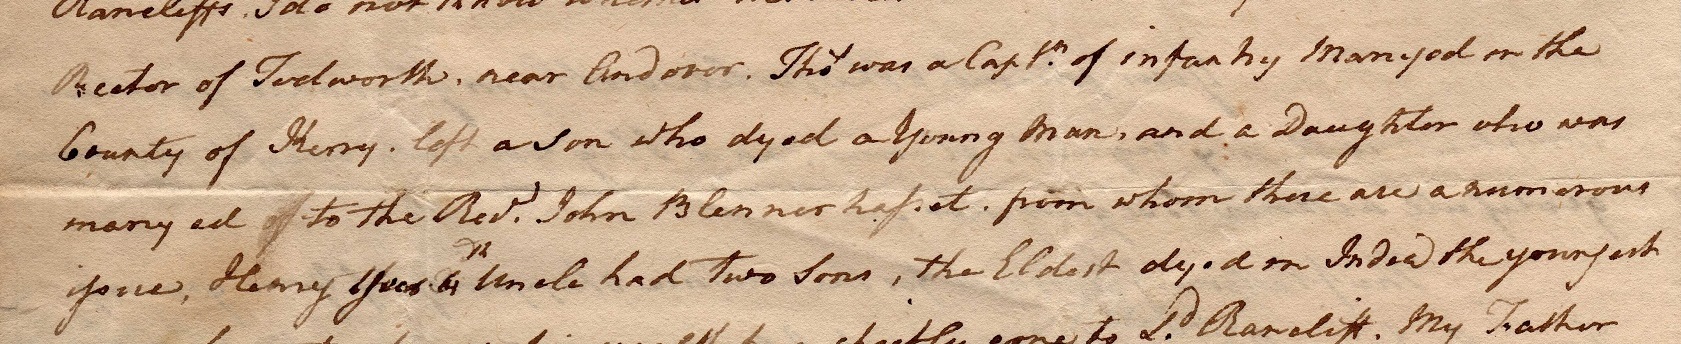 Rancliffs. I do not know
Rector of Tedworth. near Andover. Thos. was a Captn. of infantry Marryed in the
County of Kerry. left a Son who dyed a Young Man, and a Daughter who was
marryed to the Revd. John Blennerhasset. from whom there are a numerous
issue, Henry 4th Uncle had Two Sons, the Eldest dyed in India the youngest
gone to Ld. Rancliff. My Father